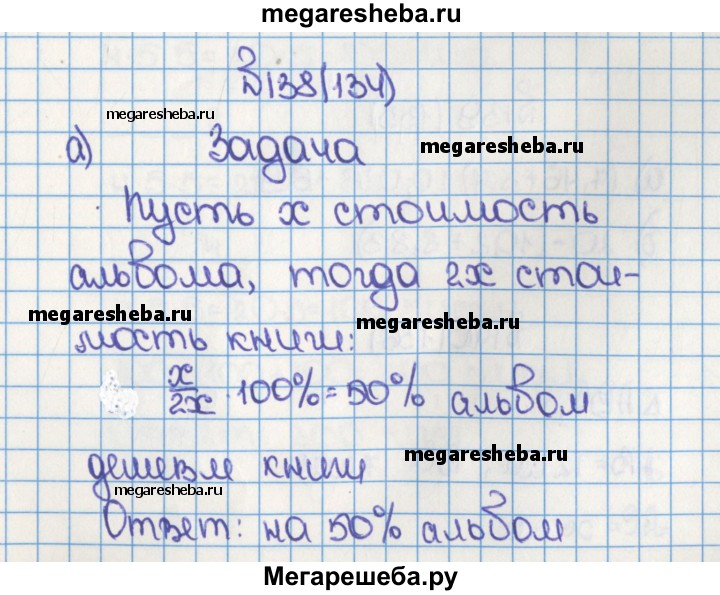 megaresheba.ru
№138(134)
megaresheba.ru
а) Задача
megaresheba.ru
Пусть х стоимость
альбома, тогда 2х стои-
megaresheba.ru
megaresheba.ru
мость книги:
х/2х · 100% = 50% альбом
megaresheba.ru
дешевле книги
megaresheba.ru
Ответ: на 50% альбом
megaresheba.ru
megaresheba.ru
Мегарешеба.ру